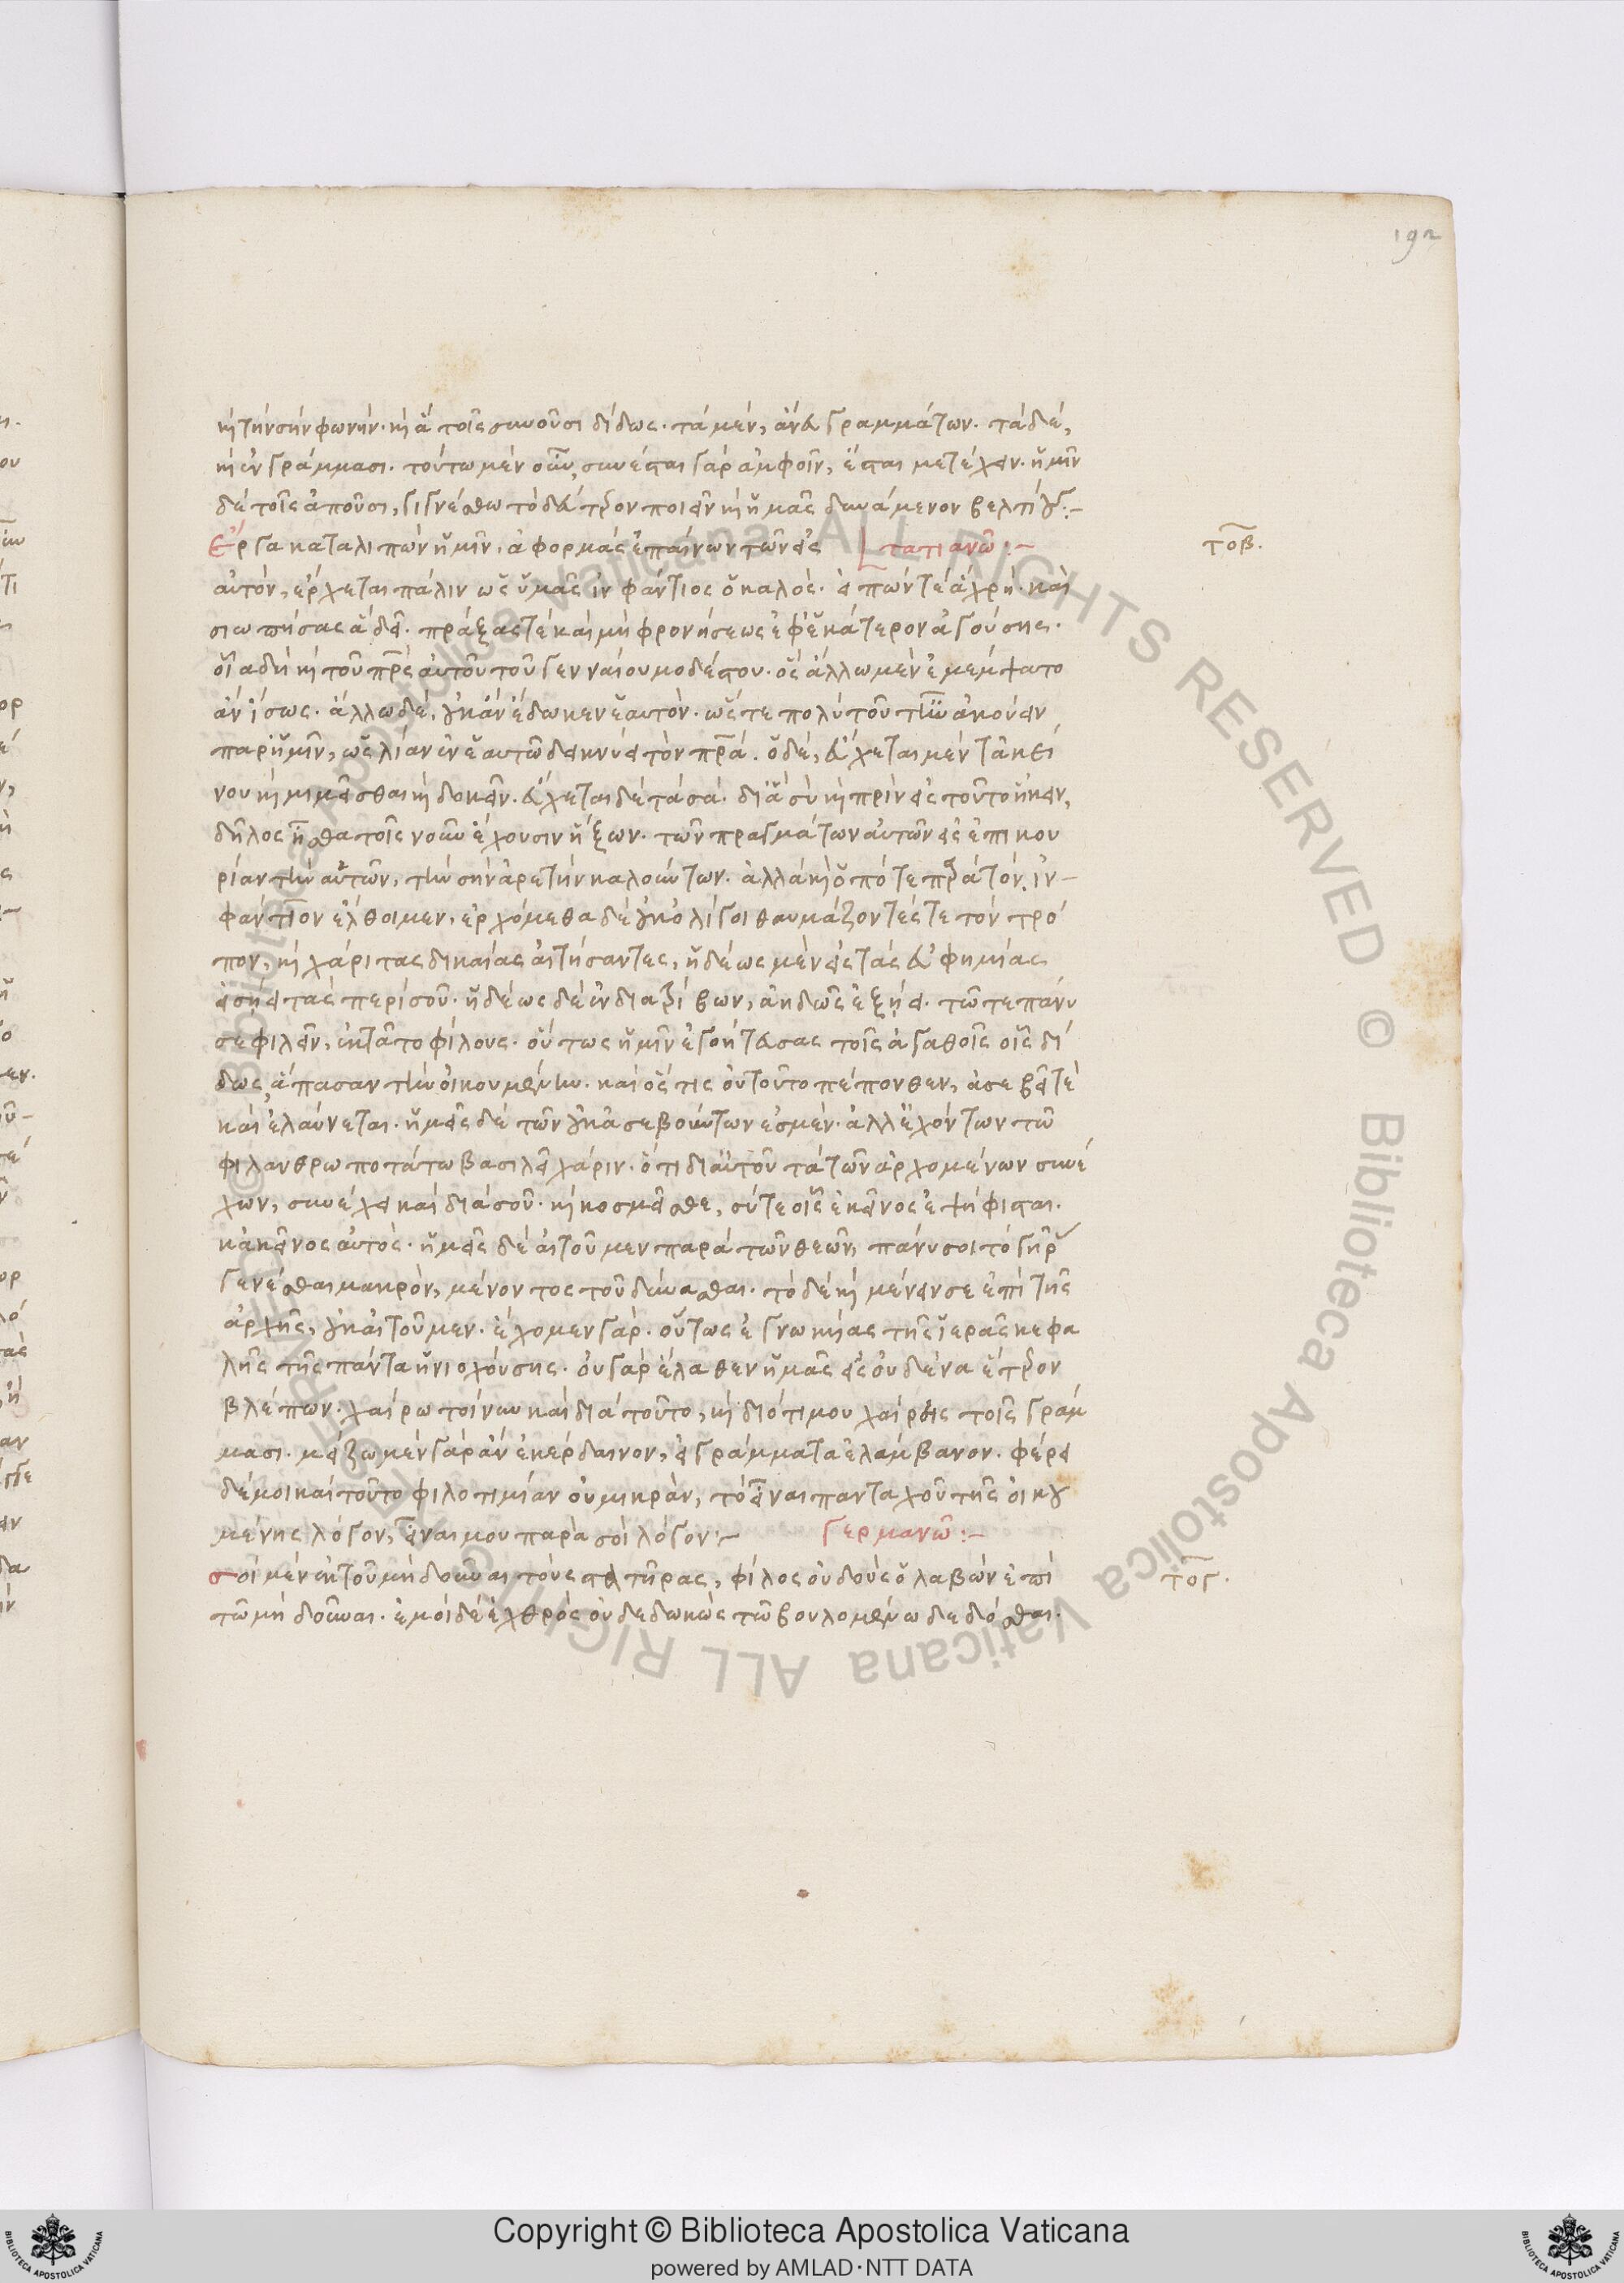 192
καὶ τὴν σὴν φωνήν· καὶ ἃ τοῖς συνοῦσι δίδως· τὰ μέν, ἄνευ γραμμάτων· τὰ δέ,
καὶ ἐν γράμμασι· τούτω μὲν οὖν, συνέσται γὰρ ἀμφοῖν, ἔσται μετέχειν· ἡμῖν
δὲ τοῖς ἀποῦσι, γιγνέσθω τὸ δεύτερον ποιεῖν καὶ ἡμᾶς δυνάμενον βελτίους:–
Ἔργα καταλιπὼν ἡμῖν, ἀφορμὰς ἐπαίνων τῶν εἰς τατιανῶ:– τοβ.
αὐτόν, ἔρχεται πάλιν ὡς ὑμᾶς ἰνφάντιος ὁ καλός· εἰπών τε ἃ χρή· καὶ
σιωπήσας ἃ δεῖ· πράξας τὲ καὶ μὴ φρονήσεως ἐφ' ἑκάτερον ἀγούσης·
οἷα δὴ καὶ τοῦ πρὸς αὐτοῦ τοῦ γενναίου μοδέστου· ὃς ἄλλω μὲν ἐμέμψατο
ἂν ἴσως· ἄλλω δέ, οὐκ ἂν ἔδωκεν ἑαυτόν· ὥστε πολὺ τοῦτ' ἦν ἀκούειν
παρ' ἡμῖν, ὡς λίαν ἐν ἑαυτῶ δεικνύει τὸν πατέρα· ὁ δέ, εὔχεται μὲν τἀκεί
νου καὶ μιμεῖσθαι καὶ δοκεῖν· εὔχεται δὲ τὰ σά· δι' ἃ σὺ καὶ πρὶν εἰς τοῦτο ἥκειν,
δῆλος ἦσθα τοῖς νοῦν ἔχουσιν ἥξων· τῶν πραγμάτων αὐτῶν εἰς ἐπικου
ρίαν τὴν αὑτῶν, τὴν σὴν ἀρετὴν καλούντων· ἀλλὰ καὶ ὁπότε πρὸς τὸν ἰν–
φάντιον ἔλθοιμεν, ἐρχόμεθα δὲ οὐκ ὀλίγοι θαυμάζοντές τε τὸν τρό
πον, καὶ χάριτας δικαίας αἰτήσαντες, ἡδέως μὲν εἰς τὰς εὐφημίας
εἰσῄει τὰς περὶ σοῦ· ἡδέως δὲ ἐνδιατρίβων, ἀηδῶς ἐξῄει· τῶ τε πάνυ
σε φιλεῖν, ἐκτᾶτο φίλους· οὕτως ἡμῖν ἐγοήτευσας τοῖς ἀγαθοῖς οἷς δί
δως, ἅπασαν τὴν οἰκουμένην· καὶ ὅστις οὐ τοῦτο πέπονθεν, ἀσεβεῖ τὲ
καὶ ἐλαύνεται· ἡμεῖς δὲ τῶν οὐκ ἀσεβούντων ἐσμέν· ἀλλ' ἐχόντων τῶ
φιλανθρωποτάτω βασιλεῖ χάριν· ὅτι δι' αὑτοῦ τὰ τῶν ἀρχομένων συνέ
χων, συνέχει καὶ διὰ σοῦ· καὶ κοσμεῖσθε, σύ τε οἷς ἐκεῖνος ἐψήφισται·
κἀκεῖνος αὐτός· ἡμεῖς δὲ αἰτοῦμεν παρὰ τῶν θεῶν, πάνυ σοι τὸ γῆρας
γενέσθαι μακρόν, μένοντος τοῦ δύνασθαι· τὸ δὲ καὶ μένειν σε ἐπὶ τῆς
ἀρχῆς, οὐκ αἰτοῦμεν· ἔχομεν γάρ· οὕτως ἐγνωκυίας τῆς ἱερᾶς κεφα
λῆς τῆς πάντα ἡνιοχούσης· οὐ γὰρ ἔλαθεν ἡμᾶς εἰς οὐδένα ἕτερον
βλέπων· χαίρω τοίνυν καὶ διὰ τοῦτο, καὶ διότι μου χαίρεις τοῖς γράμ
μασι· μείζω μὲν γὰρ ἂν ἐκέρδαινον, εἰ γράμματα ἐλάμβανον· φέρει
δέ μοι καὶ τοῦτο φιλοτιμίαν οὐ μικράν, τὸ εἶναι πανταχοῦ τῆς οἰκου
μένης λόγον, εἶναι μου παρὰ σοὶ λόγον:– γερμανῶ:–
σοὶ μὲν ἐκ τοῦ μὴ δοῦναι τοὺς στατῆρας, φίλος οὐ δοὺς ὁ λαβὼν ἐπὶ τογ.
τῶ μὴ δοῦναι· ἐμοὶ δὲ ἐχθρὸς οὐ δεδωκὼς τῶ βουλομένω δεδόσθαι·
© Biblioteca Apostolica Vaticana ALL RIGHTS RESERVED © Biblioteca Apostolica Vaticana ALL RIGHTS RESERVED
Copyright © Biblioteca Apostolica Vaticana
powered by AMLAD·NTT DATA
BIBLIOTECA APOSTOLICA VATICANA
BIBLIOTECA APOSTOLICA VATICANA